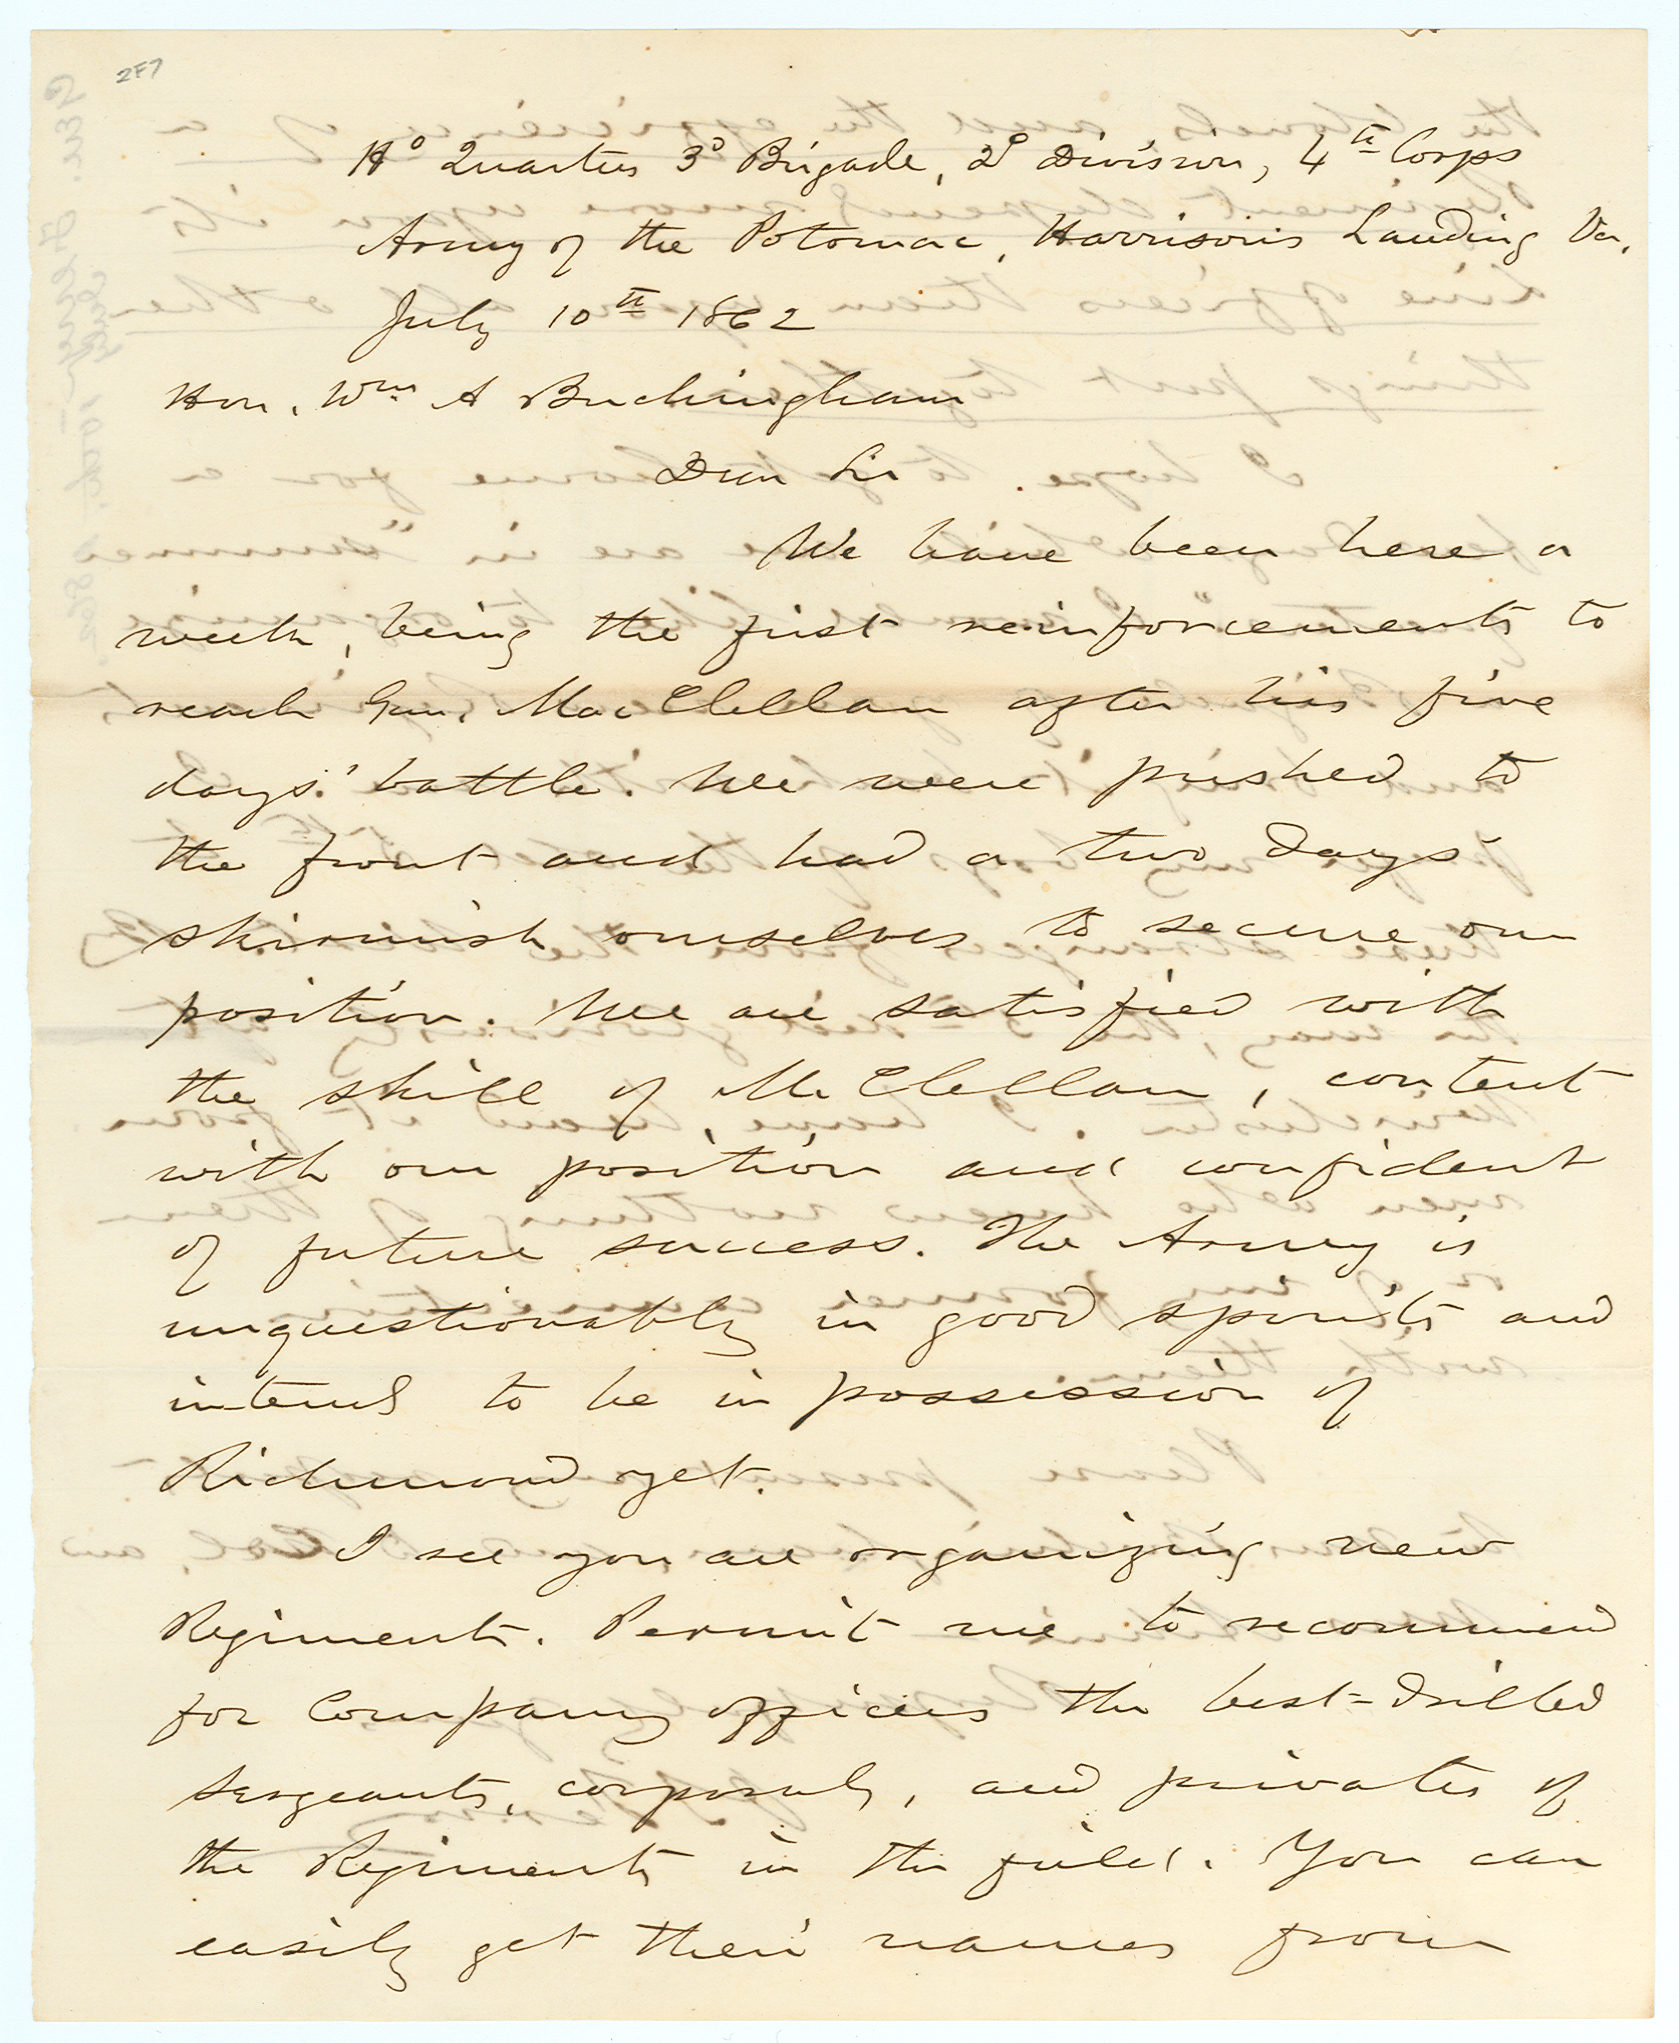 2F7
Hd Quarters 3d Brigade, 2d Division, 4th Corps
Army of the Potomac, Harrison's Landing Va.
July 10th 1862
Hon. Wm A Buckingham
Dear Sir
We have been here a
week, being the first reinforcements to
reach Gen. MacClellan after his five
days' battle. We were pushed to
the front and had a two days'
skirmish ourselves to secure our
position. We are satisfied with
the skill of McClellan, content
with our position and confident
of future success. The Army is
unquestionably in good spirits and
intend to be in possession of
Richmond yet.
I see you are organizing new
Regiments. Permit me to recommend
for Company officers the best-drilled
sergeants, corporals, and privates of
the Regiments in the field. You can
easily get their names from